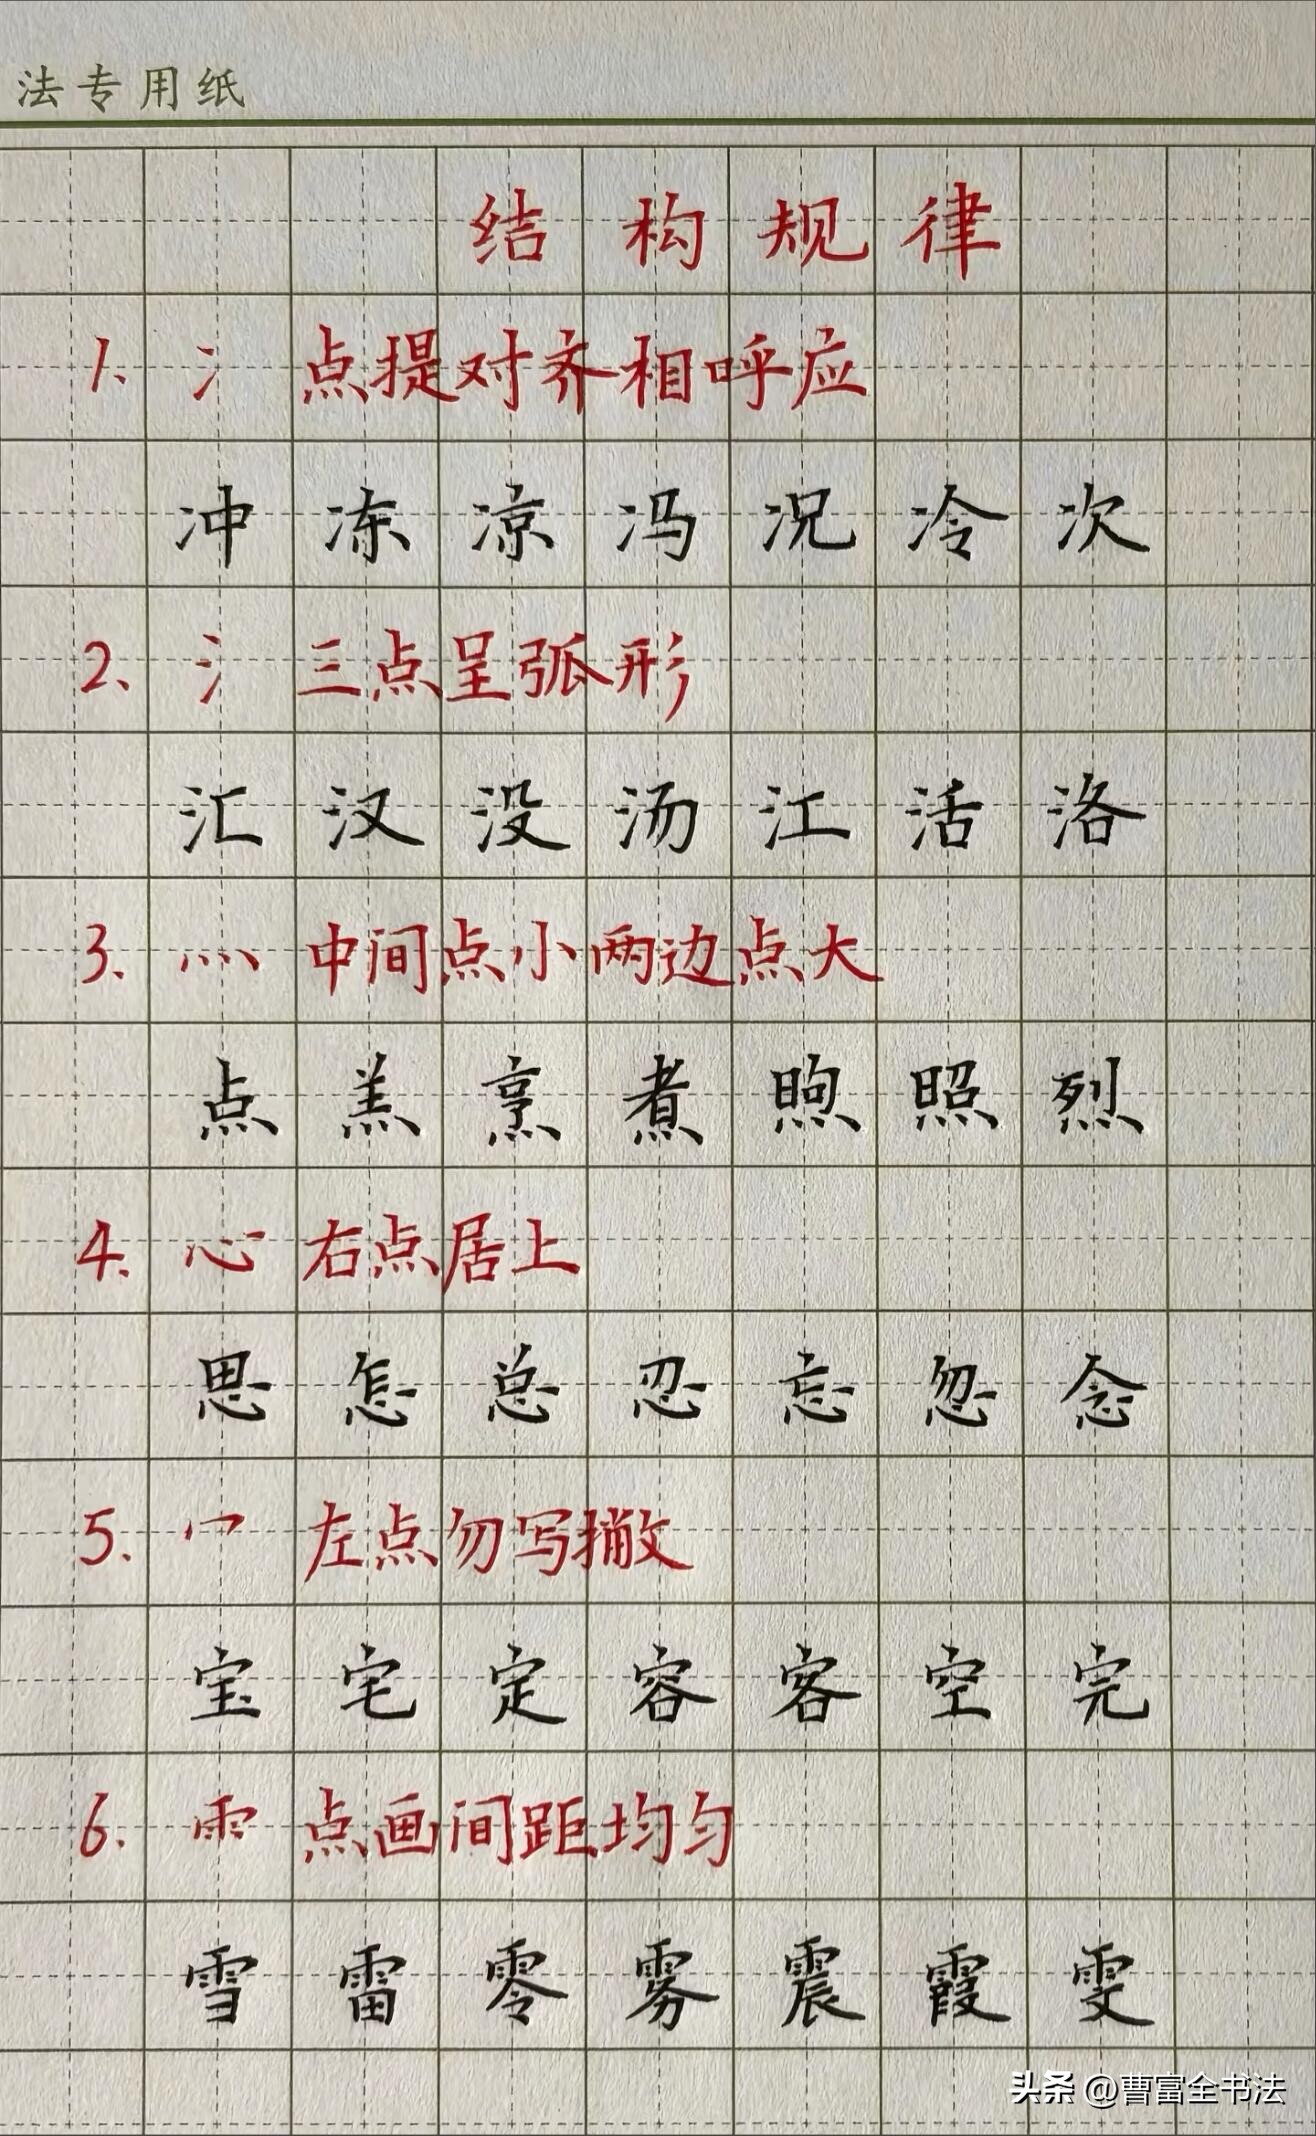 法专用纸
结构规律
1、冫点提对齐相呼应
冲冻凉冯况冷次
2、氵三点呈弧形
汇汉没汤江活洛
3、灬中间点小两边点大
点羔烹煮煦照烈
4、心右点居上
思怎总忍忘忽念
5、宀左点勿写撇
宝宅定容客空完
6、⻗点画间距均匀
雪雷零雾震霞雯
头条 @曹富全书法